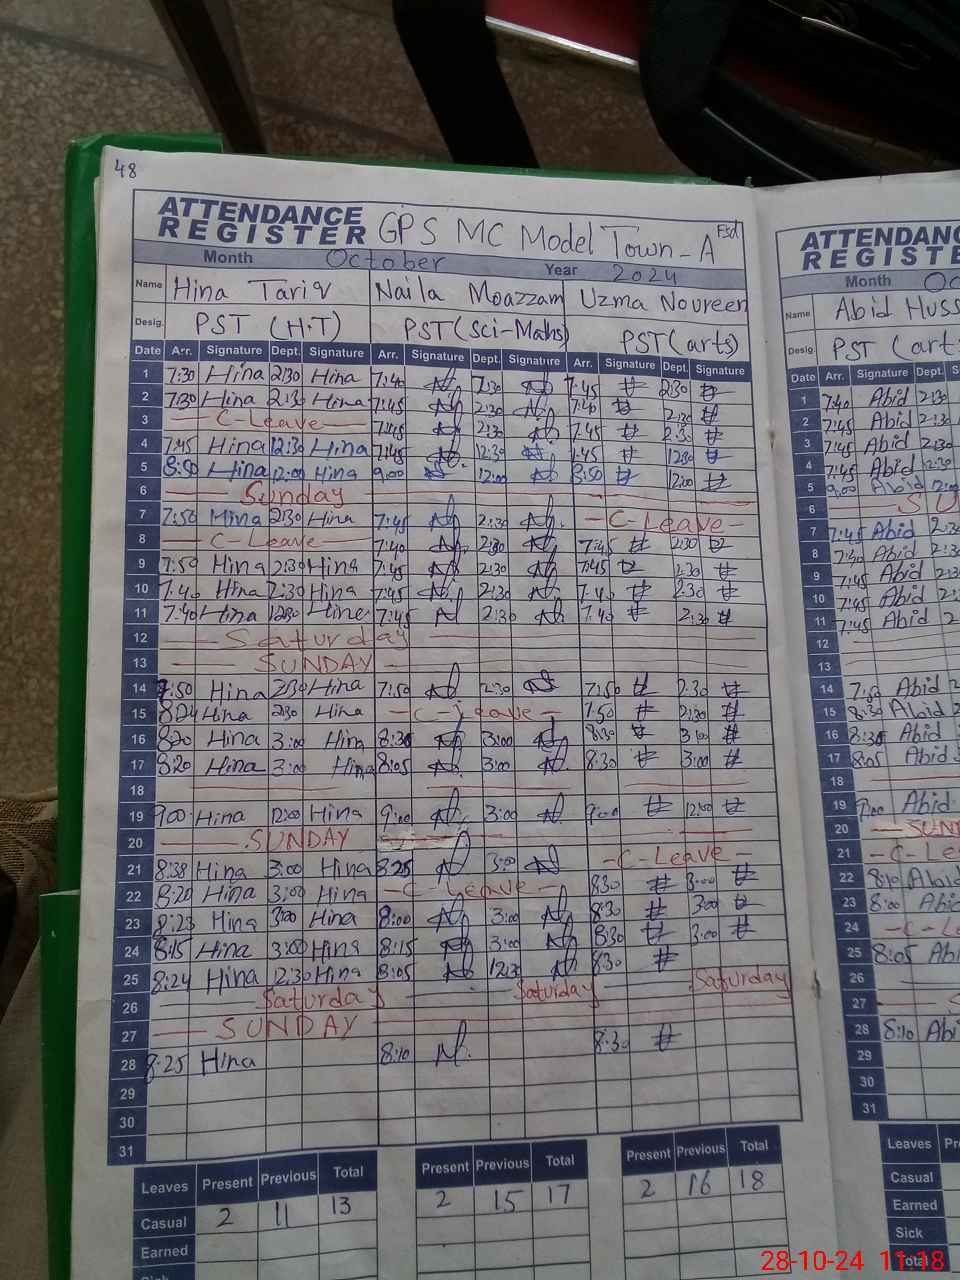 48
ATTENDANCE REGISTER GPS MC Model Town-A Fsd
Month October Year 2024
Name Hina Tariq Naila Moazzam Uzma Noureen
Desig. PST (H.T) PST (Sci-Maths) PST (arts)
Date Arr. Signature Dept. Signature Arr. Signature Dept. Signature Arr. Signature Dept. Signature
1 7:30 Hina 2:30 Hina 7:40 7:30 7:45 2:30
2 7:30 Hina 2:30 Hina 7:45 2:30 7:40 2:30
3 C-Leave 7:45 2:30 7:45 2:30
4 7:45 Hina 12:30 Hina 7:45 12:30 7:45 12:30
5 8:50 Hina 12:00 Hina 9:00 12:00 8:50 12:00
6 Sunday
7 7:50 Hina 2:30 Hina 7:45 2:30 C-Leave
8 C-Leave 7:40 2:30 7:45 2:30
9 7:50 Hina 2:30 Hina 7:45 2:30 7:45 2:30
10 7:40 Hina 2:30 Hina 7:45 2:30 7:40 2:30
11 7:40 Hina 12:30 Hina 7:45 2:30 7:40 2:30
12 Saturday
13 SUNDAY
14 7:50 Hina 2:30 Hina 7:50 2:30 7:50 2:30
15 8:24 Hina 2:30 Hina C-Leave 7:50 2:30
16 8:20 Hina 3:00 Hina 8:30 3:00 8:30 3:00
17 8:20 Hina 3:00 Hina 8:05 3:00 8:30 3:00
18
19 9:00 Hina 12:00 Hina 9:00 3:00 9:00 12:00
20 SUNDAY
21 8:38 Hina 3:00 Hina 8:25 3:00 C-Leave
22 8:20 Hina 3:00 Hina C-Leave 8:30 3:00
23 8:23 Hina 3:00 Hina 8:00 3:00 8:30 3:00
24 8:15 Hina 3:00 Hina 8:15 3:00 8:30 3:00
25 8:24 Hina 12:30 Hina 8:05 12:30 8:30
26 Saturday Saturday Saturday
27 SUNDAY
28 8:25 Hina 8:10 8:30
29
30
31
Leaves Present Previous Total Present Previous Total Present Previous Total
Casual 2 11 13 2 15 17 2 16 18
Earned
ATTENDANC
REGISTE
Month Oc
Name Abid Huss
Desig. PST (art
Date Arr. Signature Dept. S
1 7:40 Abid 2:30
2 7:45 Abid 2:30
3 7:45 Abid 2:30
4 7:45 Abid 2:30
5 9:00 Abid 12:0
6 SU
7 7:45 Abid 2:3
8 7:40 Abid 2:3
9 7:45 Abid 2:3
10 7:45 Abid 2:3
11 7:45 Abid 2
12
13
14 7:50 Abid 2
15 8:30 Abid 2
16 8:30 Abid
17 8:05 Abid
18
19 9:00 Abid
20 SUN
21 C-Le
22 8:10 Abid
23 8:00 Abid
24 C-L
25 8:05 Abi
26
27
28 8:10 Abi
29
30
31
Leaves Pr
Casual
Earned
Sick
Total
28-10-24 11:18